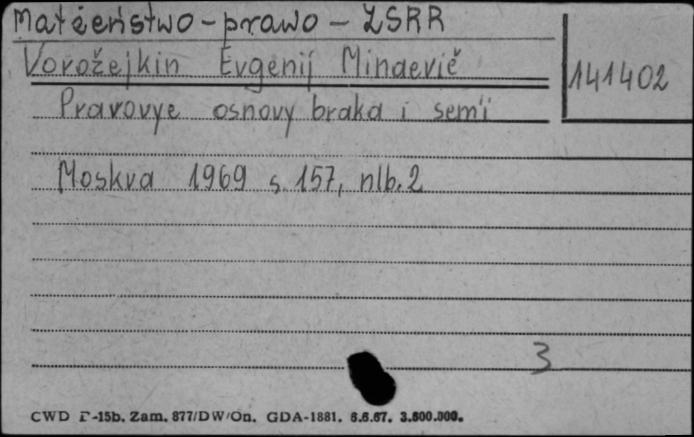 Małżeństwo - prawo - ZSRR
Vorožejkin Evgenij Minaevič
141402
Pravovye osnovy braka i sem'i
Moskva 1969 s. 157, nlb. 2
3
CWD F-15b. Zam. 877/DW/On. GDA-1881. 6.6.67. 3.500.000.